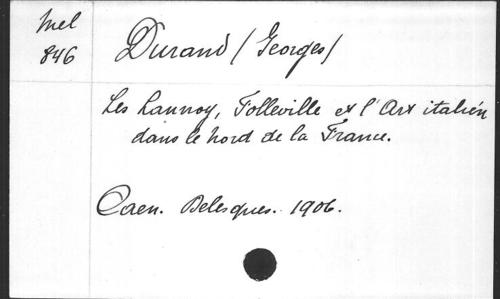 Mel
846
Durand (Georges)
Les Lannoy, Folleville et l'Art italien
dans le Nord de la France.
Caen. Delesques. 1906.